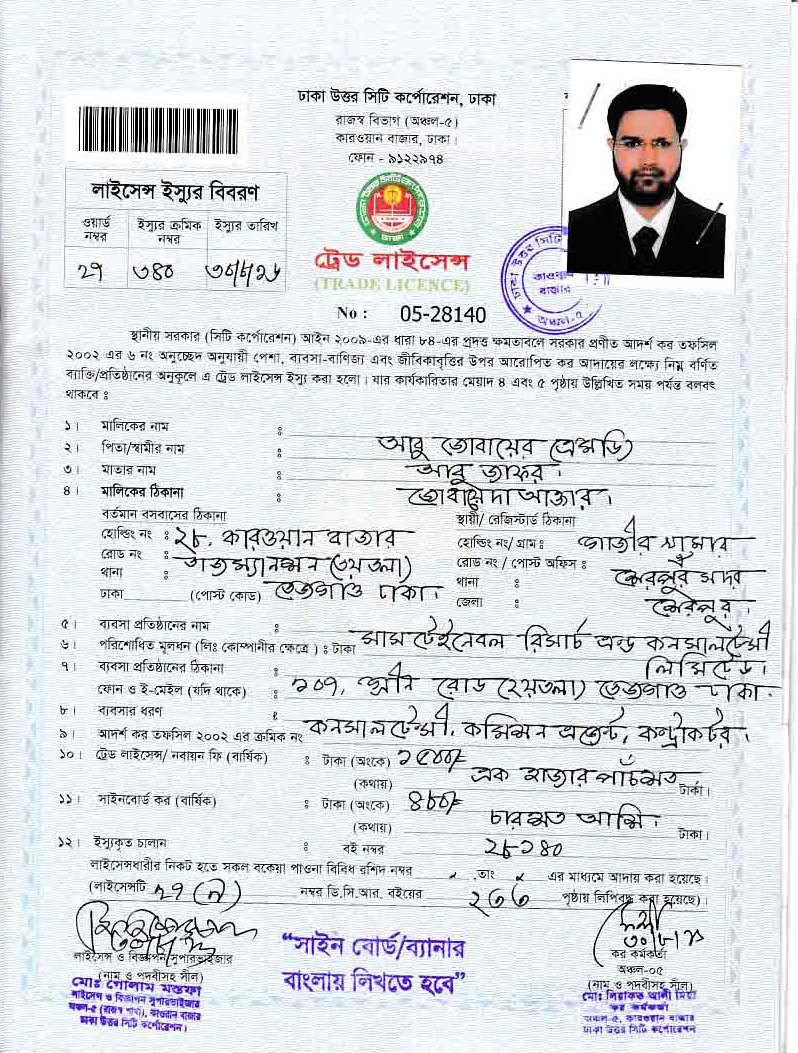 ঢাকা উত্তর সিটি কর্পোরেশন, ঢাকা
রাজস্ব বিভাগ (অঞ্চল-৫)
কারওয়ান বাজার, ঢাকা।
ফোন - ৯১২২৯৭৪
লাইসেন্স ইস্যুর বিবরণ
ওয়ার্ড নম্বর
ইস্যুর ক্রমিক নম্বর
ইস্যুর তারিখ
২৭ ৩৪০
ট্রেড লাইসেন্স
(TRADE LICENCE)
No : 05-28140
স্থানীয় সরকার (সিটি কর্পোরেশন) আইন ২০০৯-এর ধারা ৮৪-এর প্রদত্ত ক্ষমতাবলে সরকার প্রণীত আদর্শ কর তফসিল
২০০২ এর ৬ নং অনুচ্ছেদ অনুযায়ী পেশা, ব্যবসা-বাণিজ্য এবং জীবিকাবৃত্তির উপর আরোপিত কর আদায়ের লক্ষ্যে নিম্ন বর্ণিত
ব্যাক্তি/প্রতিষ্ঠানের অনুকূলে এ ট্রেড লাইসেন্স ইস্যু করা হলো। যার কার্যকারিতার মেয়াদ ৪ এবং ৫ পৃষ্ঠায় উল্লিখিত সময় পর্যন্ত বলবৎ
থাকবে ঃ
১। মালিকের নাম ঃ আবু জোবায়ের (এমডি)
২। পিতা/স্বামীর নাম ঃ আবু জাফর।
৩। মাতার নাম ঃ জোবায়েদা আক্তার।
৪। মালিকের ঠিকানা ঃ
বর্তমান বসবাসের ঠিকানা
স্থায়ী/ রেজিস্টার্ড ঠিকানা
হোল্ডিং নং ঃ ২৮, কারওয়ান বাজার
হোল্ডিং নং/ গ্রাম ঃ
রোড নং ঃ (৩য়তলা)
রোড নং / পোস্ট অফিস ঃ
থানা ঃ
থানা ঃ শেরপুর সদর
ঢাকা (পোস্ট কোড) তেজগাঁও ঢাকা।
জেলা ঃ শেরপুর।
৫। ব্যবসা প্রতিষ্ঠানের নাম ঃ
৬। পরিশোধিত মূলধন (লিঃ কোম্পানীর ক্ষেত্রে) ঃ টাকা সাসটেইনেবল রিসার্চ এন্ড কনসালটেন্সী
লিমিটেড।
৭। ব্যবসা প্রতিষ্ঠানের ঠিকানা
ফোন ও ই-মেইল (যদি থাকে) ঃ ১০৭, গ্রীন রোড (২য়তলা) তেজগাঁও ঢাকা।
৮। ব্যবসার ধরণ ঃ
৯। আদর্শ কর তফসিল ২০০২ এর ক্রমিক নং কনসালটেন্সী, কমিশন এজেন্ট, কন্ট্রাকটর।
১০। ট্রেড লাইসেন্স/ নবায়ন ফি (বার্ষিক) ঃ টাকা (অংকে) ১৫০০/=
(কথায়) এক হাজার পাঁচশত টাকা।
১১। সাইনবোর্ড কর (বার্ষিক) ঃ টাকা (অংকে) ৪৮০/=
(কথায়) চারশত আশি। টাকা।
১২। ইস্যুকৃত চালান ঃ বই নম্বর ২৮১৪০
লাইসেন্সধারীর নিকট হতে সকল বকেয়া পাওনা বিবিধ রশিদ নম্বর ,তাং এর মাধ্যমে আদায় করা হয়েছে।
(লাইসেন্সটি ২৭ নম্বর ডি.সি.আর. বইয়ের ২৬৬ পৃষ্ঠায় লিপিবদ্ধ করা হয়েছে)।
লাইসেন্স ও বিজ্ঞাপন সুপারভাইজার
(নাম ও পদবীসহ সীল)
মোঃ গোলাম মস্তফা
লাইসেন্স ও বিজ্ঞাপন সুপারভাইজার
অঞ্চল-৫ (রাজস্ব শাখা), কাওরান বাজার
ঢাকা উত্তর সিটি কর্পোরেশন।
“সাইন বোর্ড/ব্যানার
বাংলায় লিখতে হবে”
কর কর্মকর্তা
অঞ্চল-০৫
(নাম ও পদবীসহ সীল)
মোঃ লিয়াকত আলী মিয়া
কর কর্মকর্তা
অঞ্চল-৫, কারওয়ান বাজার
ঢাকা উত্তর সিটি কর্পোরেশন